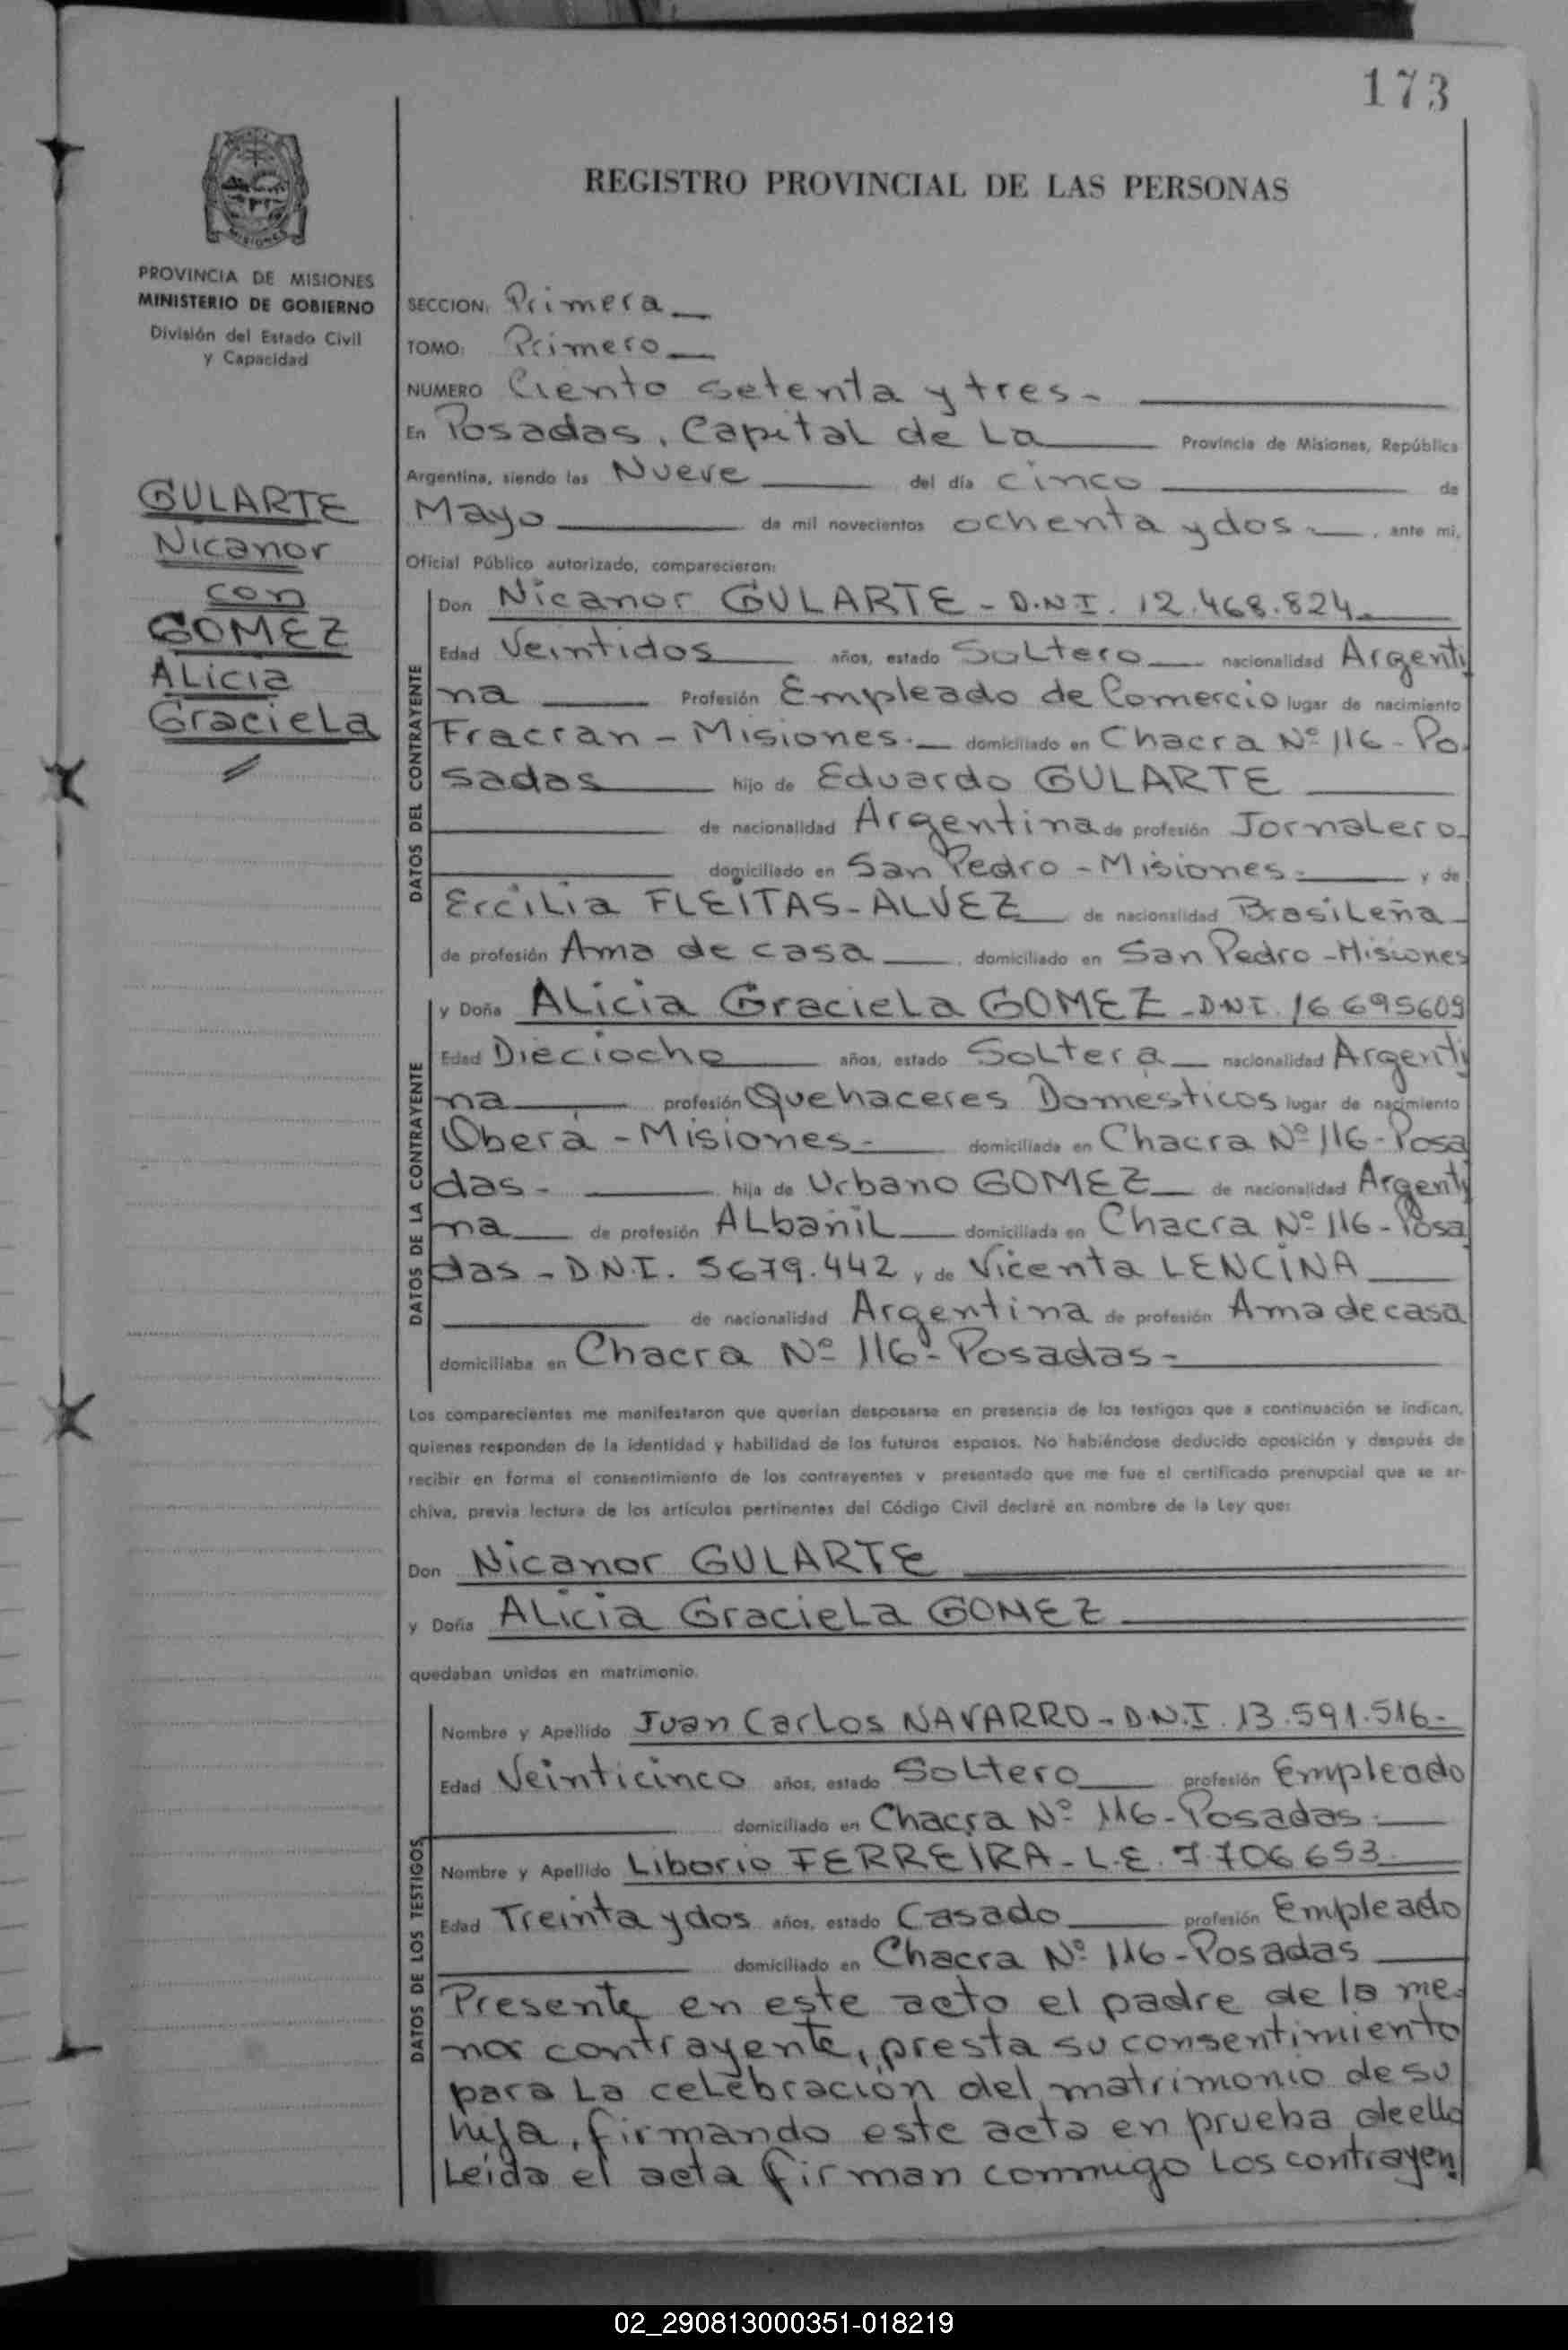 173
REGISTRO PROVINCIAL DE LAS PERSONAS
MISIONES
PROVINCIA DE MISIONES
MINISTERIO DE GOBIERNO
División del Estado Civil
y Capacidad
GULARTE
Nicanor
con
GOMEZ
Alicia
Graciela
SECCION: Primera
TOMO: Primero
NUMERO Ciento setenta y tres-
En Posadas, Capital de La Provincia de Misiones, República
Argentina, siendo las Nueve del día cinco de
Mayo de mil novecientos ochenta y dos-, ante mi,
Oficial Público autorizado, comparecieron:
DATOS DEL CONTRAYENTE
Don Nicanor GULARTE - D.N.I. 12.468.824
Edad Veintidos años, estado Soltero nacionalidad Argenti
na Profesión Empleado de Comercio lugar de nacimiento
Fracran - Misiones.- domiciliado en Chacra Nº 116 - Po
sadas hijo de Eduardo GULARTE
de nacionalidad Argentina de profesión Jornalero
domiciliado en San Pedro - Misiones- y de
Ercilia FLEITAS-ALVEZ de nacionalidad Brasileña
de profesión Ama de casa domiciliado en San Pedro - Misiones
DATOS DE LA CONTRAYENTE
y Doña Alicia Graciela GOMEZ - DNI. 16 695609
Edad Dieciocho años, estado Soltera nacionalidad Argenti
na profesión Quehaceres Domesticos lugar de nacimiento
Oberá - Misiones- domiciliada en Chacra Nº 116 - Posa
das- hija de Urbano GOMEZ de nacionalidad Argenti
na de profesión Albañil domiciliada en Chacra Nº 116 - Posa
das - D.N.I. 5679.442 y de Vicenta LENCINA
de nacionalidad Argentina de profesión Ama de casa
domiciliaba en Chacra Nº 116 - Posadas-
Los comparecientes me manifestaron que querían desposarse en presencia de los testigos que a continuación se indican,
quienes responden de la identidad y habilidad de los futuros esposos. No habiéndose deducido oposición y después de
recibir en forma el consentimiento de los contrayentes y presentado que me fue el certificado prenupcial que se ar-
chiva, previa lectura de los artículos pertinentes del Código Civil declaré en nombre de la Ley que:
Don Nicanor GULARTE
y Doña Alicia Graciela GOMEZ
quedaban unidos en matrimonio.
DATOS DE LOS TESTIGOS
Nombre y Apellido Juan Carlos NAVARRO - D.N.I. 13.591.516-
Edad Veinticinco años, estado Soltero profesión Empleado
domiciliado en Chacra Nº 116 - Posadas-
Nombre y Apellido Liborio FERREIRA - L.E. 7.706 653
Edad Treinta y dos años, estado Casado profesión Empleado
domiciliado en Chacra Nº 116 - Posadas
Presente en este acto el padre de la me-
nor contrayente, presta su consentimiento
para la celebración del matrimonio de su
hija, firmando este acta en prueba de ello
Leída el acta firman conmigo los contrayen
02_290813000351-018219